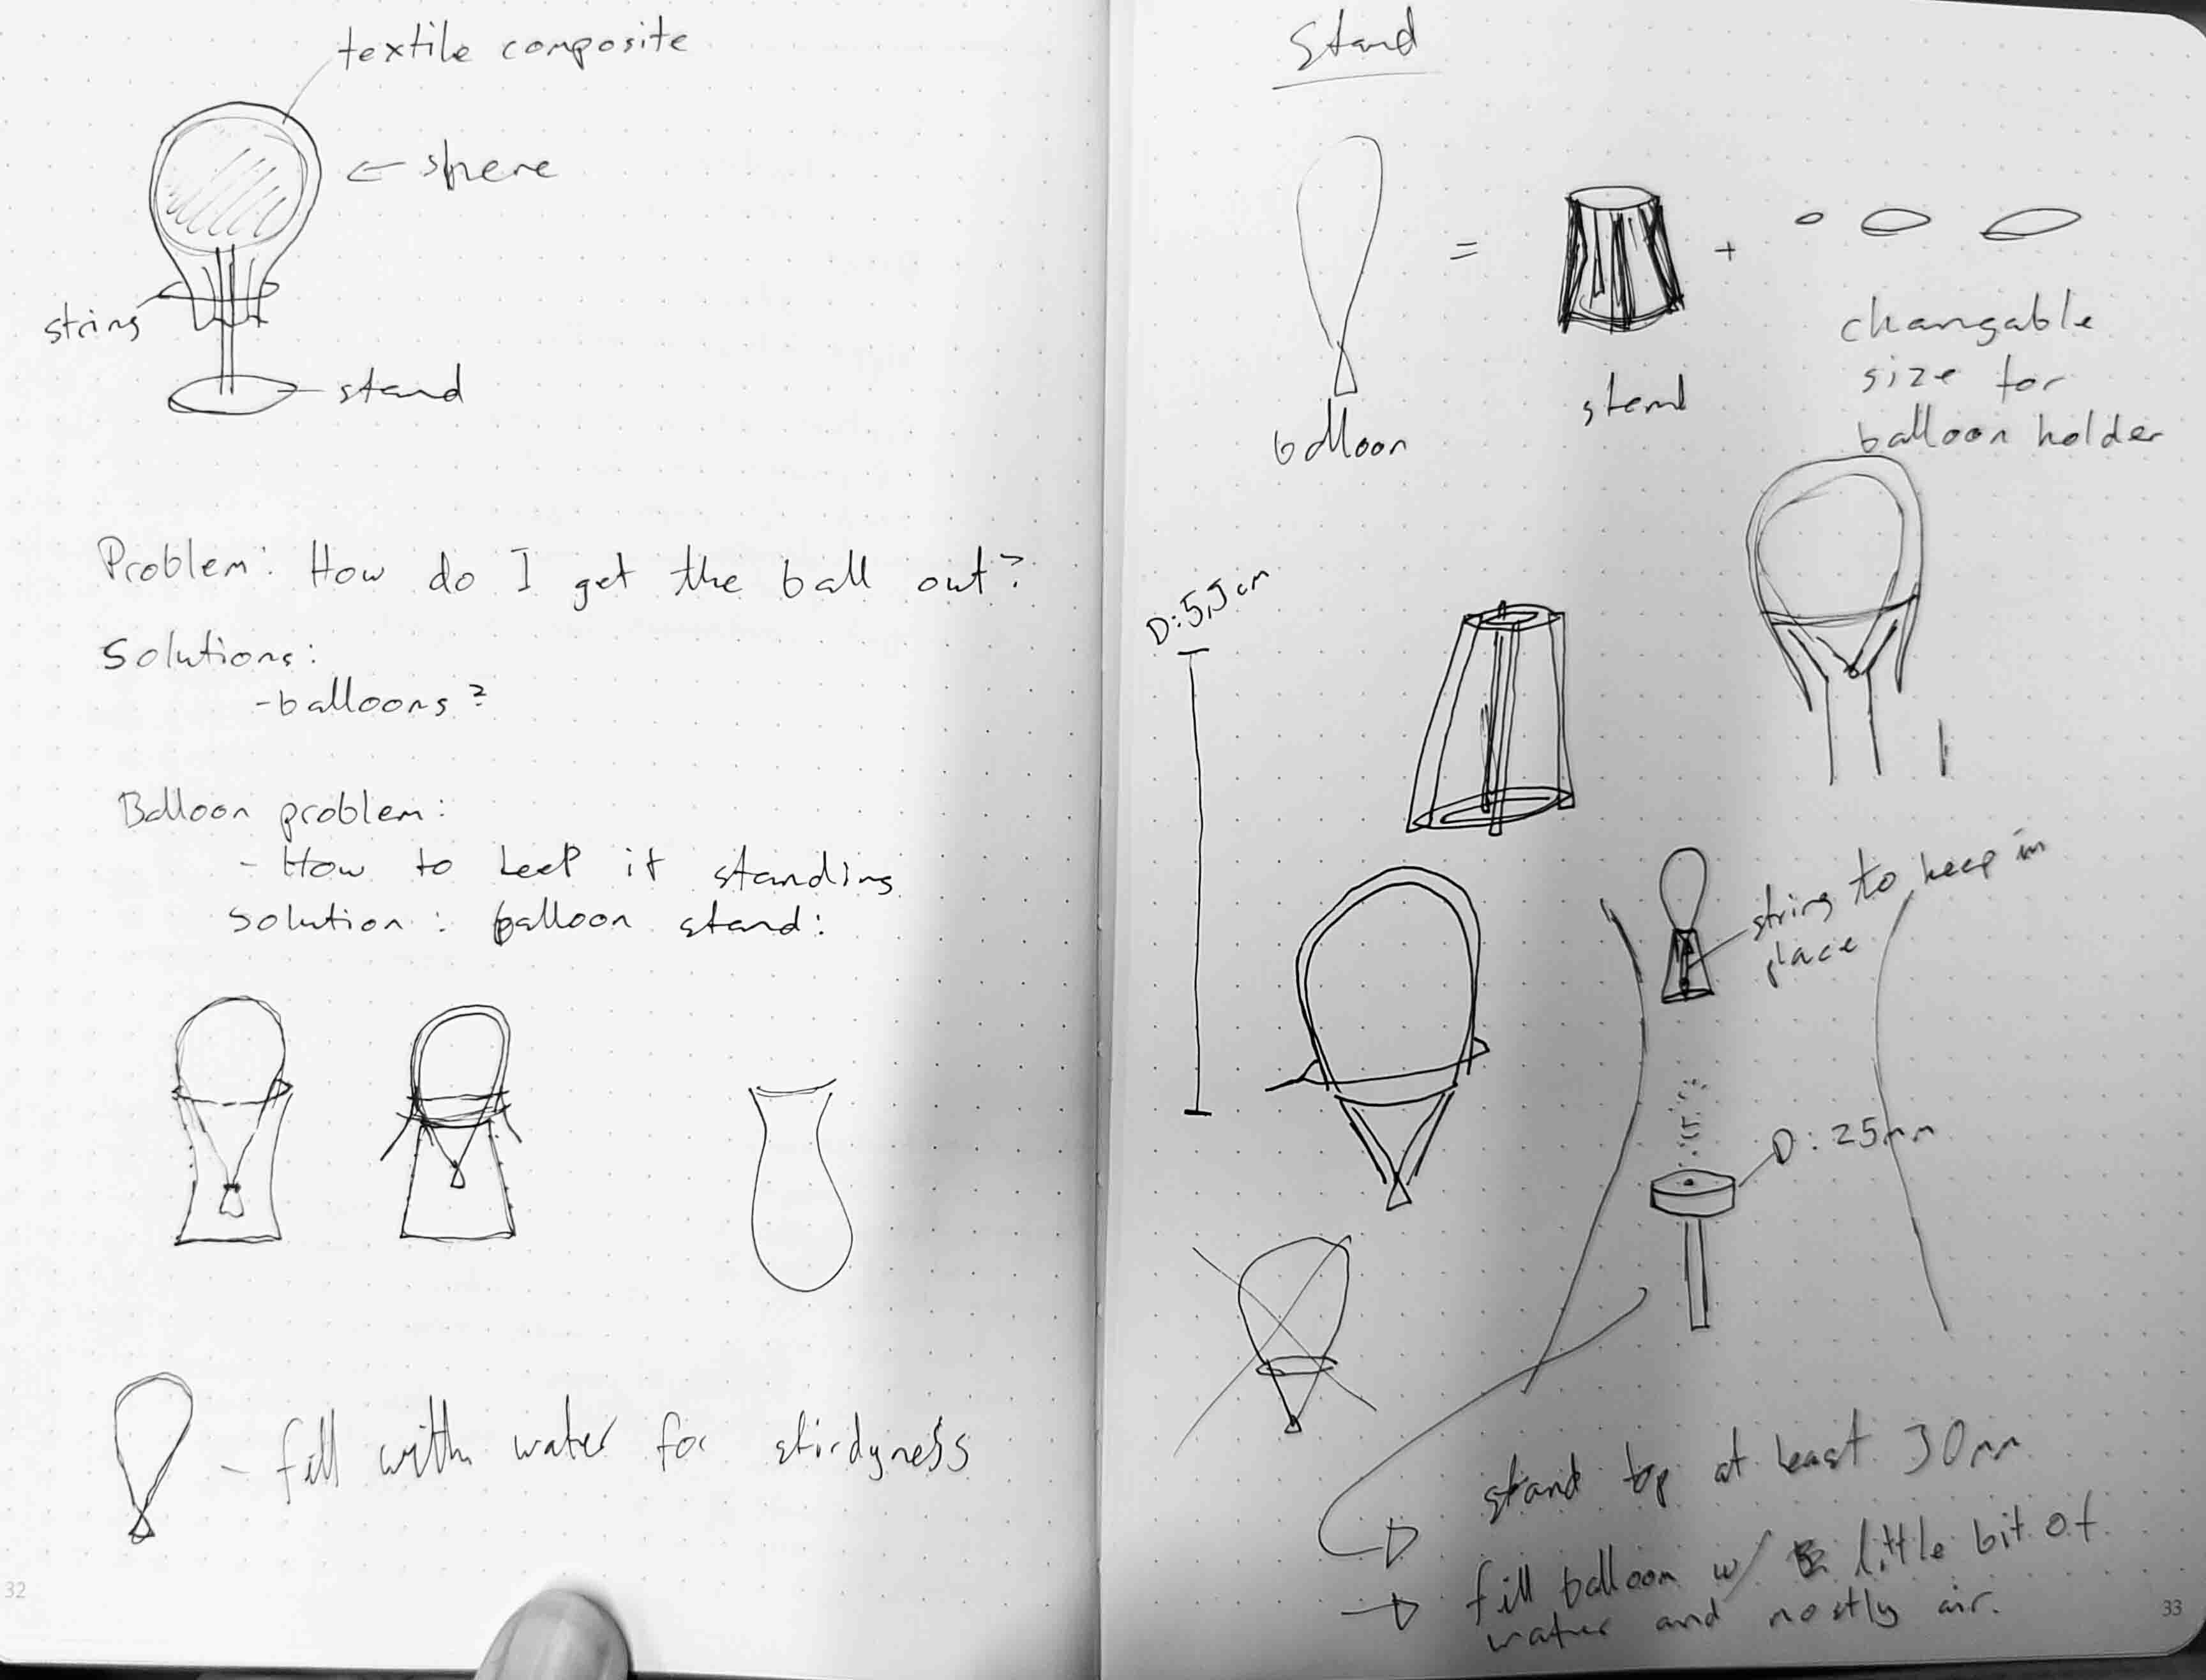 textile composite
← sphere
string
stand
Problem: How do I get the ball out?
Solutions:
- balloons?
Balloon problem:
- How to keep it standing
solution: balloon stand:
- fill with water for stirdyness
32
Stand
=
+
balloon
stand
changable
size for
balloon holder
D: 5,5 cm
string to keep in
place
D: 25mm
stand top at least 30mm
fill balloon w/ little bit of
water and mostly air.
33